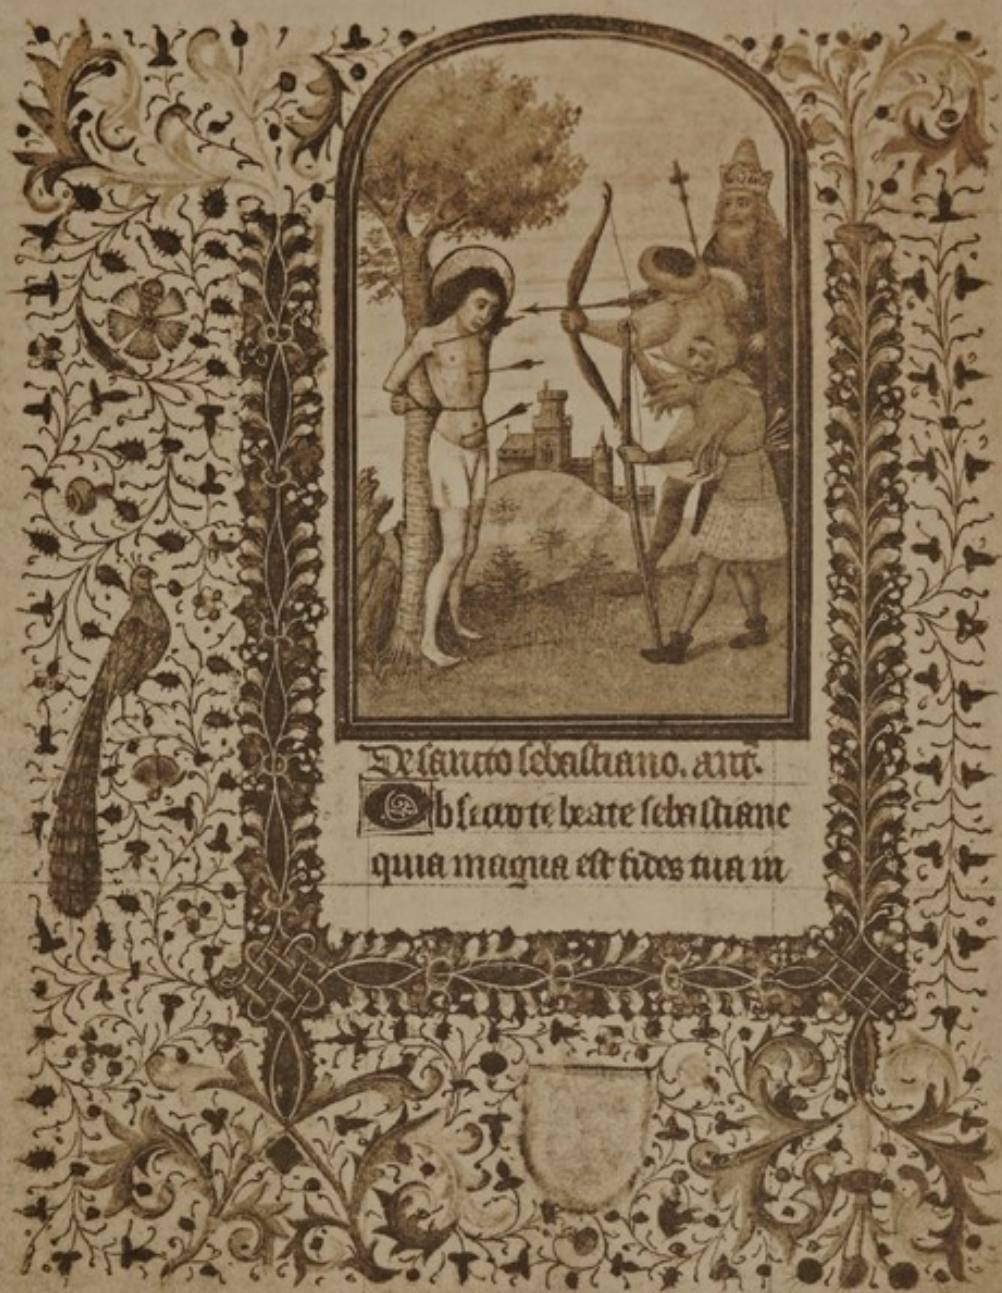 De sancto sebastiano. ant.
Obsecro te beate sebastiane
quia magna est fides tua in